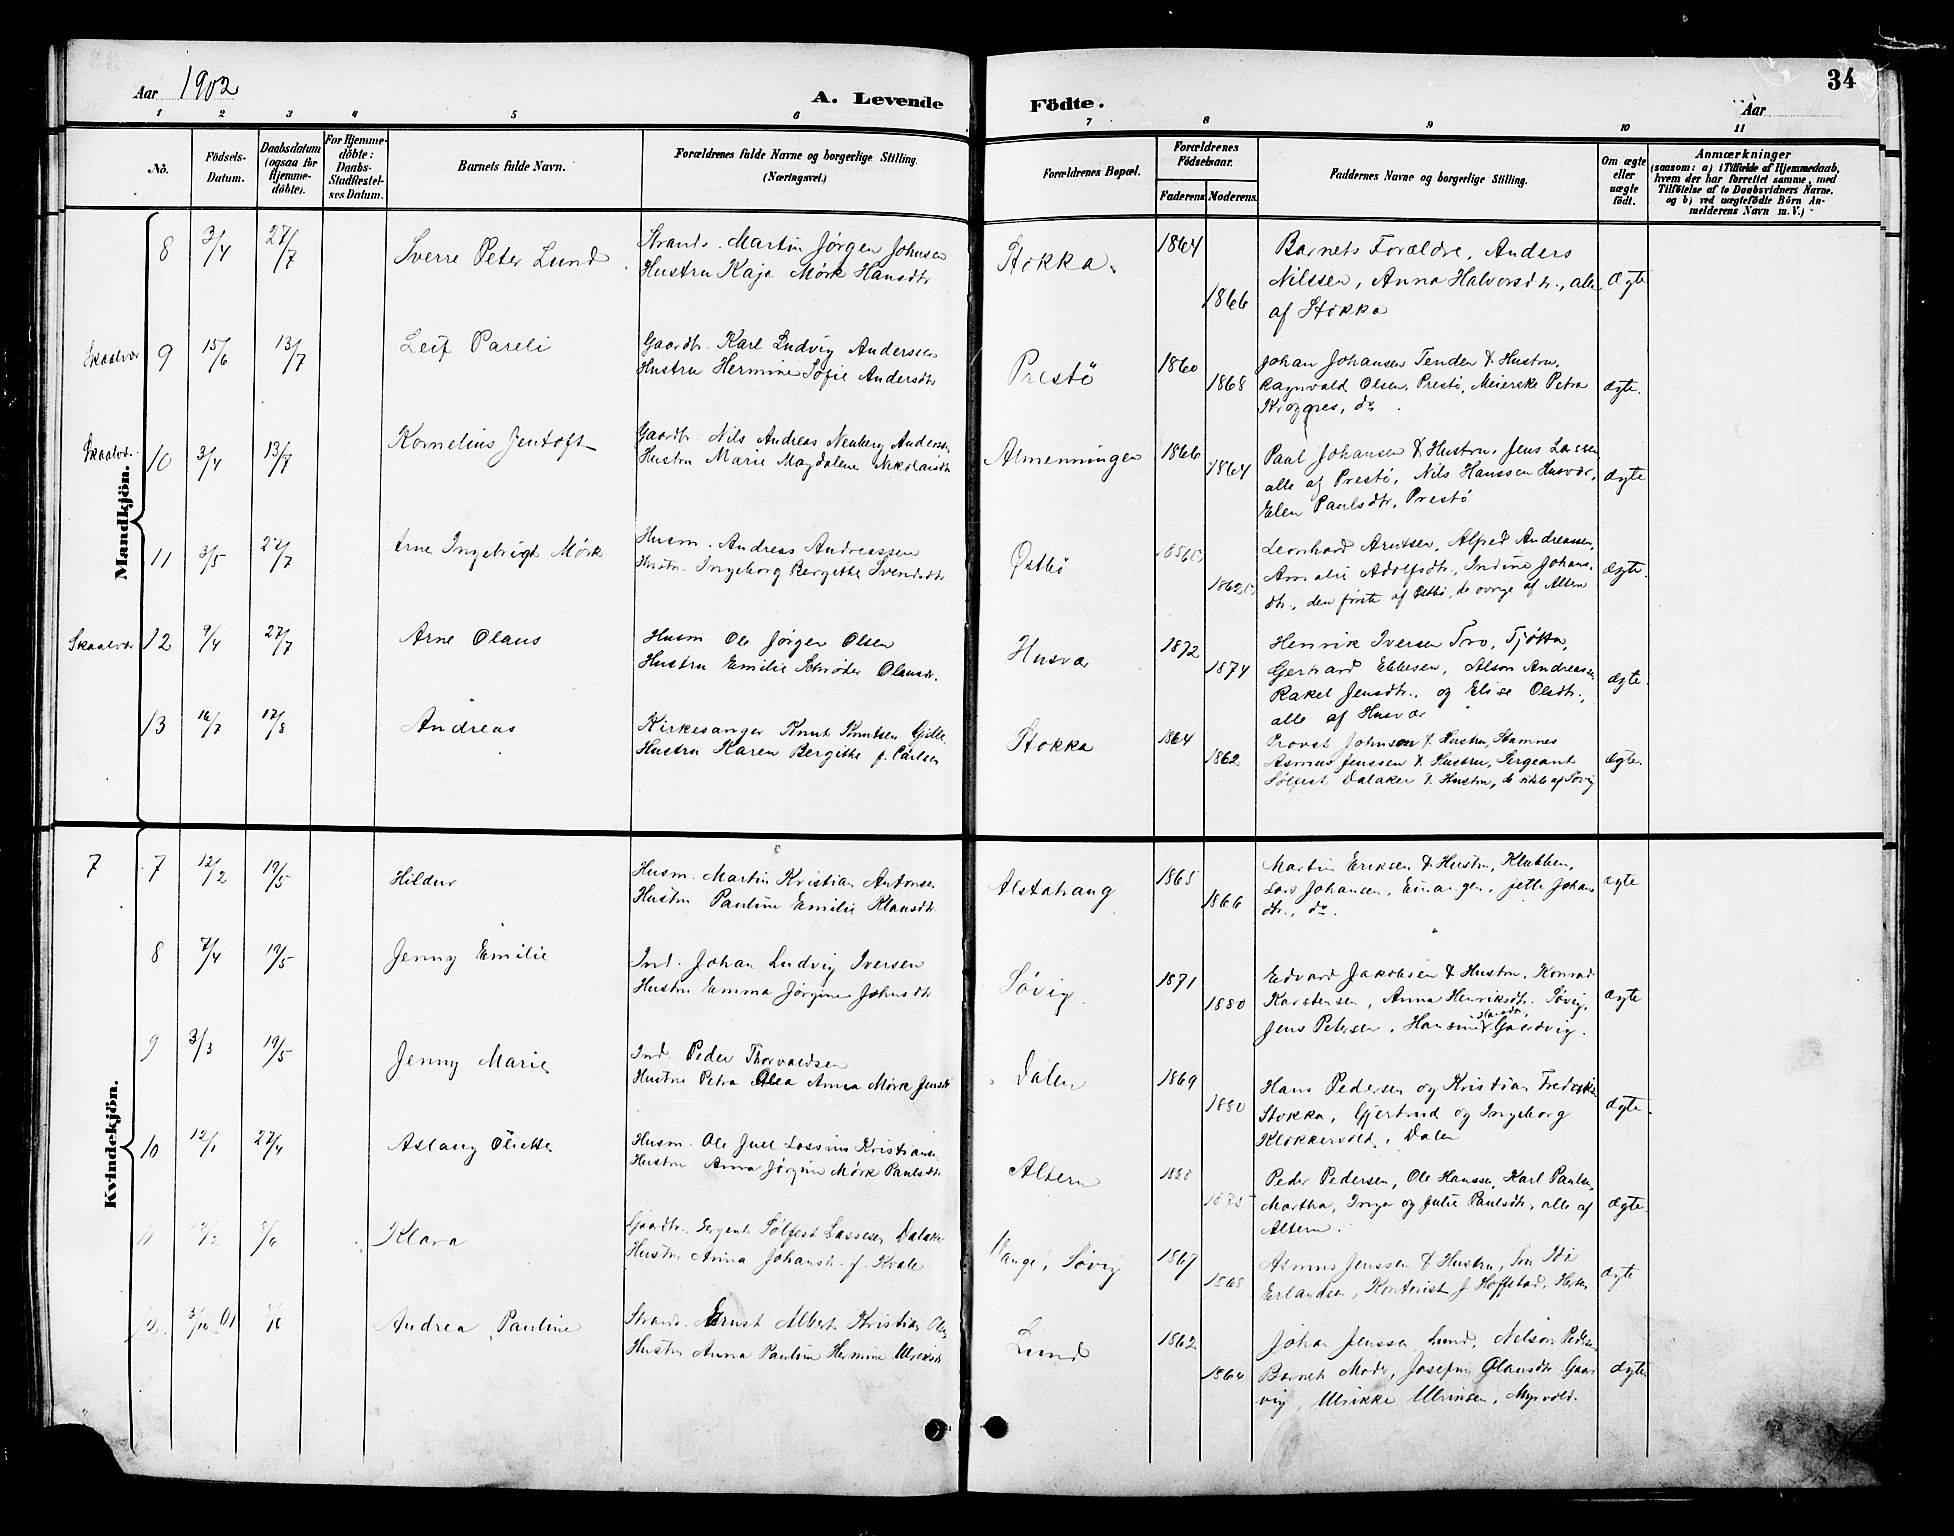 34
Aar 1902
A. Levende Födte.
Aar
1 2 3 4 5 6 7 8 9 10 11
No.
Födsels-Datum.
Daabsdatum (ogsaa for Hjemmedöbte).
For Hjemmedöbte: Daabs-Stadfæstelses Datum.
Barnets fulde Navn.
Forældrenes fulde Navne og borgerlige Stilling.
(Næringsvei.)
Forældrenes Bopæl.
Forældrenes Födselsaar.
Faderens Moderens
Faddernes Navne og borgerlige Stilling.
Om ægte eller uægte födt.
Anmærkninger
(saasom: a) i Tilfælde af Hjemmedaab, hvem der har forrettet samme, med Tilföielse af to Daabsvidners Navne. og b) ved uægtefödte Börn Anmelderens Navn m. V.)
Mandkjön.
8 3/4 27/7 Sverre Peter Lund
Strands. Martin Jørgen Johnsen
Hustru Kaja Mørk Hansdtr
Stokka 1864 1866
Barnets Forældre, Anders
Nilssen, Anna Halvorsdtr., alle
af Stokka
Ægte
Skaalvær 9 15/6 13/7 Leif Pareli
Gaardbr. Karl Ludvig Anderssen
Hustru Hermine Sofie Andersdtr
Prestö 1860 1868
Johan Johansen Tenden & Hustru,
Ragnvald Olsen, Prestö, Meierske Petra
Krognes, do.
ægte.
Skaalv. 10 3/4 13/7 Kornelius Jentoft
Gaardbr. Nils Andreas Neuberg Anderss
Hustru Marie Magdalene Nikolaisdtr
Almenningen 1866 1864
Paul Johansen & Hustru, Jens Lassen
alle af Prestö, Nils Hanssen Husvær,
Elen Paulsdtr, Prestö
ægte
11 3/5 27/7 Arne Ingebrigt Mørk
Husm. Andreas Andreassen
Hustru Ingeborg Bergitte Svendsdtr
Østbö
Leonhard Arntsen, Alfred Andreassen,
Amalie Adolfsdtr., Indine Johans.
dtr., den første af Østbö, de øvrige af Altern
ægte.
Skaalvær 12 9/4 27/7 Arne Olaus
Husm. Ole Jørgen Olsen
Hustru Emilie Schrøder Olausdtr.
Husvær 1872 1874
Henrik Iversen Tro, Tjøtta,
Gerhard Ebbesen, Alson Andreassen
Rakel Jensdtr., og Elise Olsdtr,
alle af Husvær
ægte.
13 16/7 17/8 Andreas
Kirkesanger Knut Knutsen Gille
Hustru Karen Bergitte f. Carlsen
Stokka 1864 1862
Provst Johnson & Hustru, Stamnes
Asmus Jenssen & Hustru, Sergeant
Sölfest Dalaker & Hustru, de sidste af Søvig
Ægte.
Kvindekjön.
7 7 12/2 19/5 Hildur
Husm. Martin Kristian Antonsen
Hustru Pauline Emilie Klausdtr.
Alstahaug 1865 1866
Martin Eriksen & Hustru, Klubben,
Lars Johansen, Einangen, Jette Johans
dtr., do.
ægte
8 7/4 19/5 Jenny Emilie
Ind. Johan Ludvig Iversen
Hustru Emma Jørgine Johnsdtr
Søvig 1871 1880
Edvard Jakobsen & Hustru, Konrad
Karstensen, Anna Henriksdtr. Søvig,
Jens Petersen, Hansine Gaardvig.
ægte
9 3/3 19/5 Jenny Marie
Ind. Peder Thorvaldsen
Hustru Petra Olea Anna Mørk Jensdtr
Dalen 1869 1880
Hans Pedersen og Kristian Fredriks
Stokka, Gjertrud og Ingeborg
Klokkervold, Dalen
ægte.
10 12/1 27/4 Aslaug Olette
Husm. Ole Juel Lossius Kristiansen
Hustru Anna Jørgine Mørk Paulsdtr
Altern 1875
Peder Pedersen, Ole Hanssen, Karl Paulsen,
Martha, Inga og Julie Paulsdtr, alle af
Altern.
ægte.
11 Klara
Gaardbr. Sergeant Sölfest Lassesen Dalaker
Hustru Anna Johansdtr. f. Kvale
Vange, Søvig 1867 1868
Asmus Jenssen & Hustru, Fru Ida
Erlandsen, Kontorist J Hoffstad,
ægte
12. 3/10 01 Andrea Pauline
Strands. Ernst Albert Kristian Ols
Hustru Anna Pauline Hermine Ulriksdtr
Lund 1862 1864
Johan Jenssen Lund, Nelson Peders
Barnets Moder, Josefine Olausdtr Gaar
vig, Ulrikke Ulriksen, Myrvold.
ægte